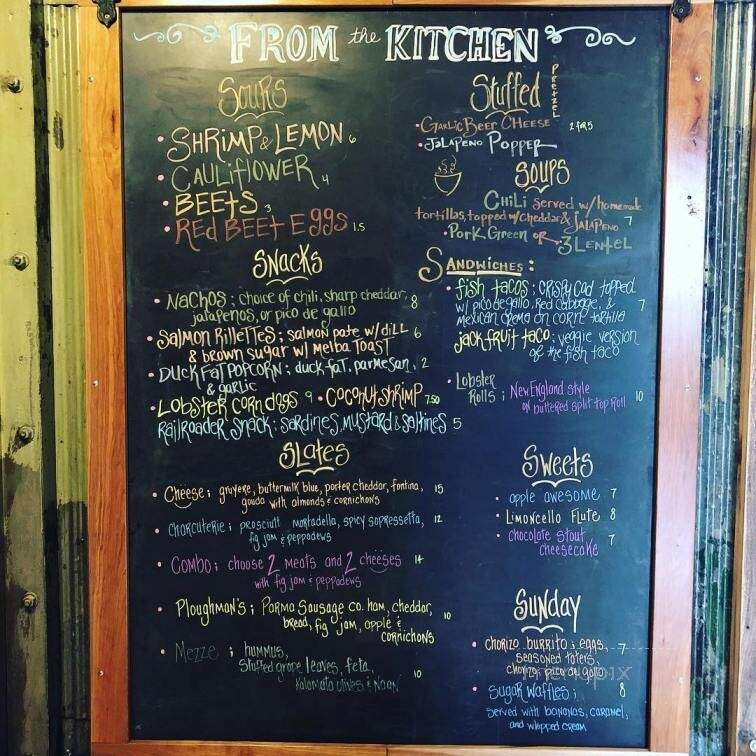 FROM the KITCHEN
SOURS
• SHRIMP & LEMON 6
• CAULIFLOWER 4
• BEETS 3
• RED BEET EGGS 1.5
SNACKS
• NACHOS ; choice of chili, sharp cheddar, 8
jalapenos, or pico de gallo
• SALMON RILLETTES ; salmon pate w/ dill 6
& brown sugar w/ MELBA TOAST
• DUCK FAT POPCORN ; duck fat, parmesan, 2
& garlic
• LOBSTER CORN dogs 9 • COCONUT SHRIMP 7.50
RAILROADER SNACK ; sardines, mustard & saltines 5
SLATES
• Cheese ; gruyere, buttermilk blue, porter cheddar, fontina, 15
gouda with almonds & cornichons
• CHARCUTERIE ; prosciutt mortadella, spicy sopressetta, 12
fig jam & peppadews
• COMBO ; choose 2 meats and 2 cheeses 14
with fig jam & peppadews
• Ploughman's ; Parma Sausage co. ham, cheddar, 10
bread, fig jam, apple &
cornichons
• Mezze ; hummus,
Stuffed grape leaves, feta, 10
Kalamata olives & Naan
Stuffed PRETZEL
• GARLIC BEER CHEESE 2 for 5
• JALAPENO POPPER
SOUPS
CHILI served w/ homemade
tortillas, topped w/ cheddar & JALAPENO 7
• PORK GREEN OR 3 LENTEL
SANDWICHES :
• fish tacos ; crispy cod topped
w/ pico de gallo, Red Cabbage, & 7
mexican crema on corn tortilla
jackfruit taco ; veggie version
of the fish taco
• Lobster
Rolls ; New England style 10
on buttered split top Roll
Sweets
• apple awesome 7
• Limoncello Flute 8
• chocolate stout 7
cheesecake
Sunday
• chorizo burrito ; eggs, 7
seasoned taters,
chorizo, pico de gallo
• Sugar Waffles ; 8
served with bananas, caramel,
and whipped cream